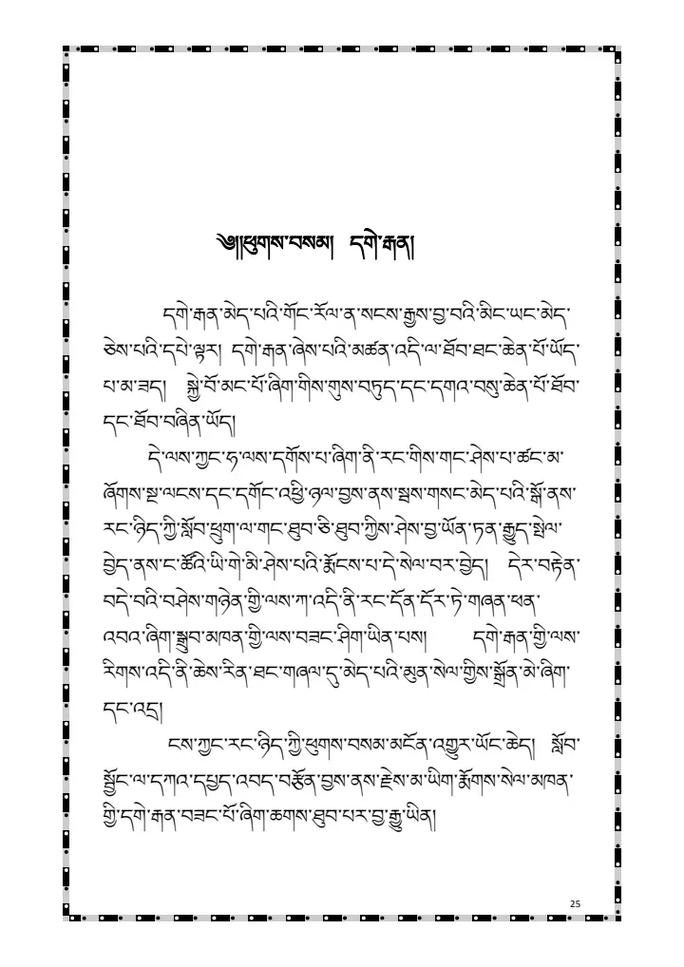 ༄༅།།ཕུགས་བསམ། དགེ་རྒན།
དགེ་རྒན་མེད་པའི་གོང་རོལ་ན་སངས་རྒྱས་བྱ་བའི་མིང་ཡང་མེད་
ཅེས་པའི་དཔེ་ལྟར། དགེ་རྒན་ཞེས་པའི་མཚན་འདི་ལ་ཐོབ་ཐང་ཆེན་པོ་ཡོད་
པ་མ་ཟད། སྐྱེ་བོ་མང་པོ་ཞིག་གིས་གུས་བཏུད་དང་དགའ་བསུ་ཆེན་པོ་ཐོབ་
དང་ཐོབ་བཞིན་ཡོད།
དེ་ལས་ཀྱང་ཧ་ལས་དགོས་པ་ཞིག་ནི་རང་གིས་གང་ཤེས་པ་ཚང་མ་
ཞོགས་སྔ་ལངས་དང་དགོང་འཕྱི་ཉལ་བྱས་ནས་སྦས་གསང་མེད་པའི་སྒོ་ནས་
རང་ཉིད་ཀྱི་སློབ་ཕྲུག་ལ་གང་ཐུབ་ཅི་ཐུབ་ཀྱིས་ཤེས་བྱ་ཡོན་ཏན་རྒྱུད་སྤེལ་
བྱེད་ནས་ང་ཚོའི་ཡི་གེ་མི་ཤེས་པའི་རྨོངས་པ་དེ་སེལ་བར་བྱེད། དེར་བརྟེན་
བདེ་བའི་བཤེས་གཉེན་གྱི་ལས་ཀ་འདི་ནི་རང་དོན་དོར་ཏེ་གཞན་ཕན་
འབའ་ཞིག་སྒྲུབ་མཁན་གྱི་ལས་བཟང་ཤིག་ཡིན་པས། དགེ་རྒན་གྱི་ལས་
རིགས་འདི་ནི་ཆེས་རིན་ཐང་གཞལ་དུ་མེད་པའི་མུན་སེལ་གྱིས་སྒྲོན་མེ་ཞིག་
དང་འདྲ།
ངས་ཀྱང་རང་ཉིད་ཀྱི་ཕུགས་བསམ་མངོན་འགྱུར་ཡོང་ཆེད། སློབ་
སྦྱོང་ལ་དཀའ་དཔྱད་འབད་བརྩོན་བྱས་ནས་རྗེས་མ་ཡིག་རྨོགས་སེལ་མཁན་
གྱི་དགེ་རྒན་བཟང་པོ་ཞིག་ཆགས་ཐུབ་པར་བྱ་རྒྱུ་ཡིན།
25